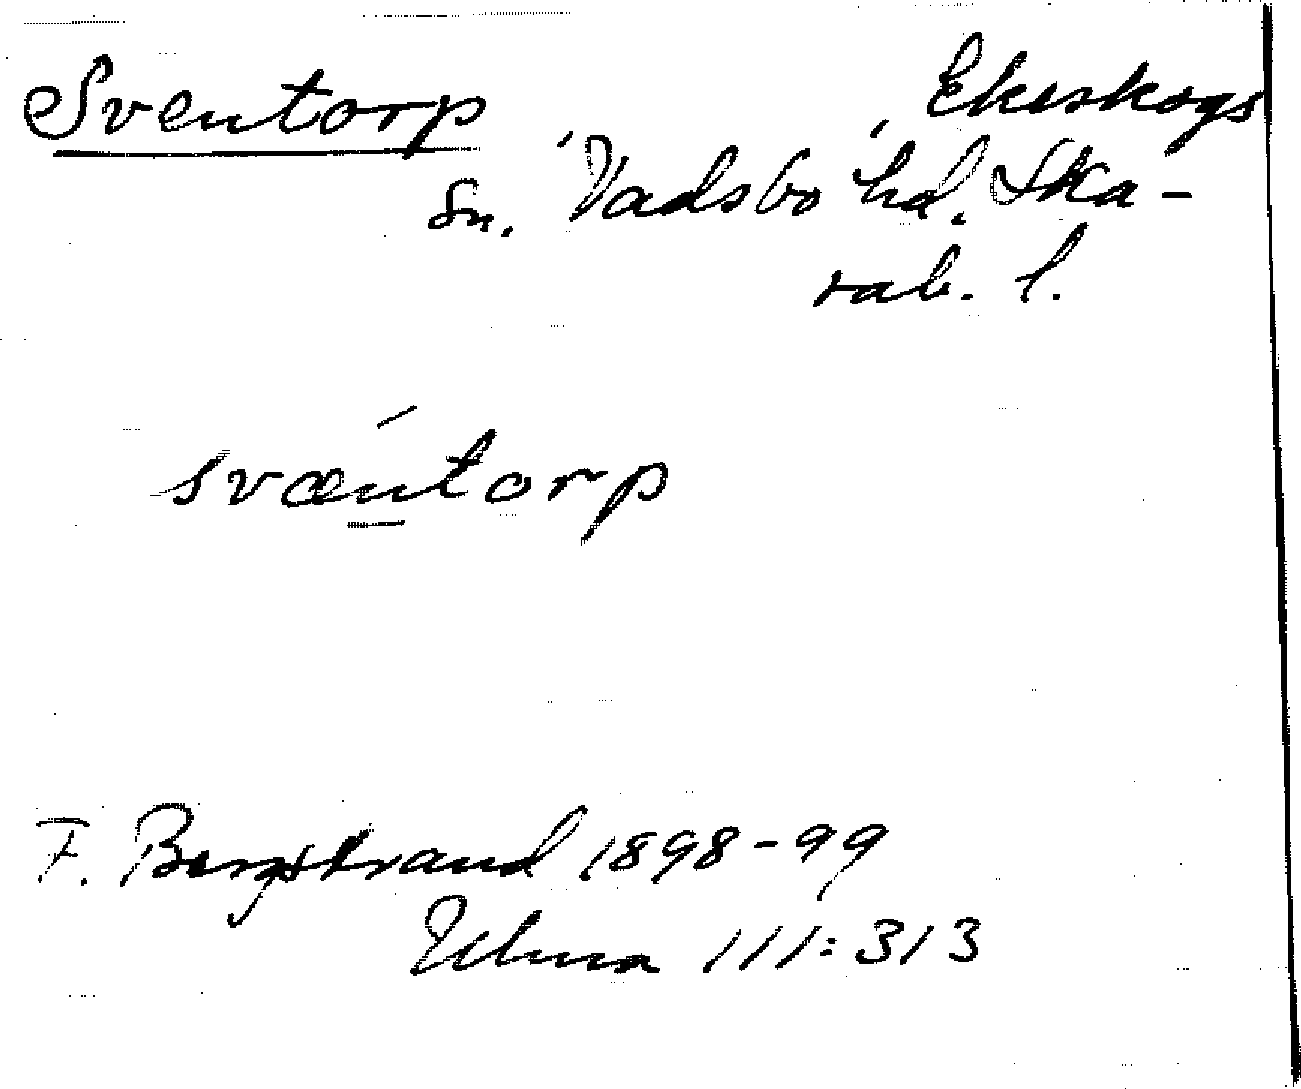 Sventorp , , Ekeskogs
sn. Vadsbo hd. Ska-
rab. l.
svæntorp
F. Bergstrand 1898-99
Ulma 111:313